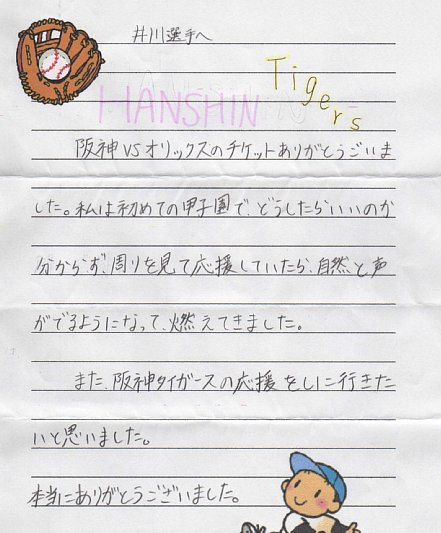 井川選手へ
Tigers
HANSHIN
阪神VSオリックスのチケットありがとうございま
した。私は初めての甲子園で、どうしたらいいのか
分からず、周りを見て応援していたら、自然と声
がでるようになって、燃えてきました。
また、阪神タイガースの応援をしに行きた
いと思いました。
本当にありがとうございました。